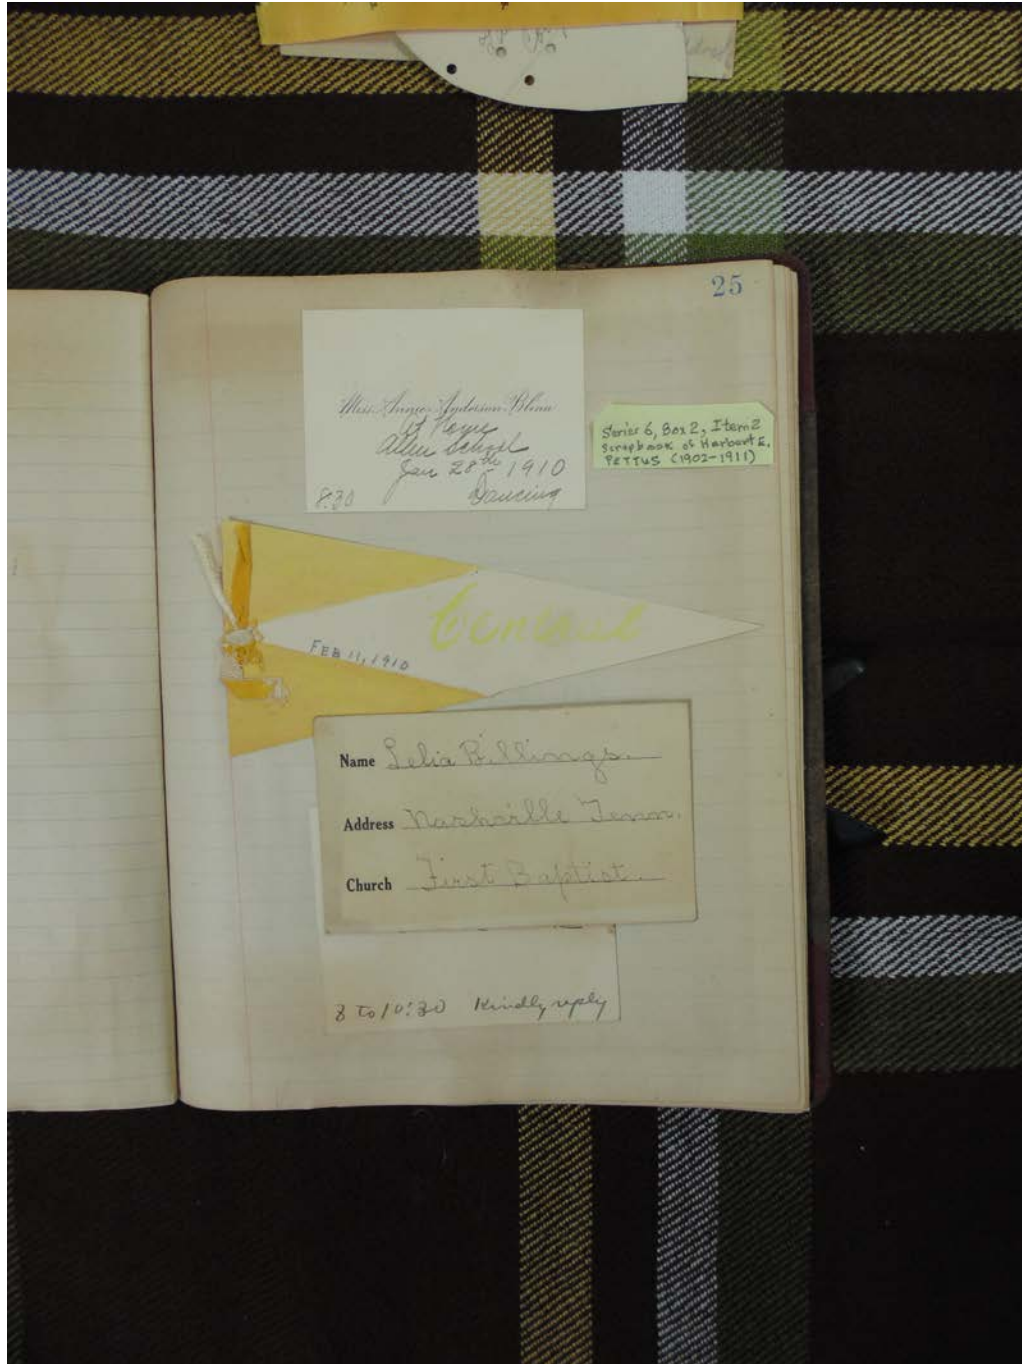 25
Miss Annie Anderson Blinn
At Home
Allen School
Jan 28th 1910
8:30 Dancing
Series 6, Box 2, Item 2
Scrapbook of Harbert E.
PETTUS (1902-1911)
Central
FEB 11, 1910
Name Lelia Billings.
Address Nashville Tenn.
Church First Baptist.
8 to 10:30 Kindly reply